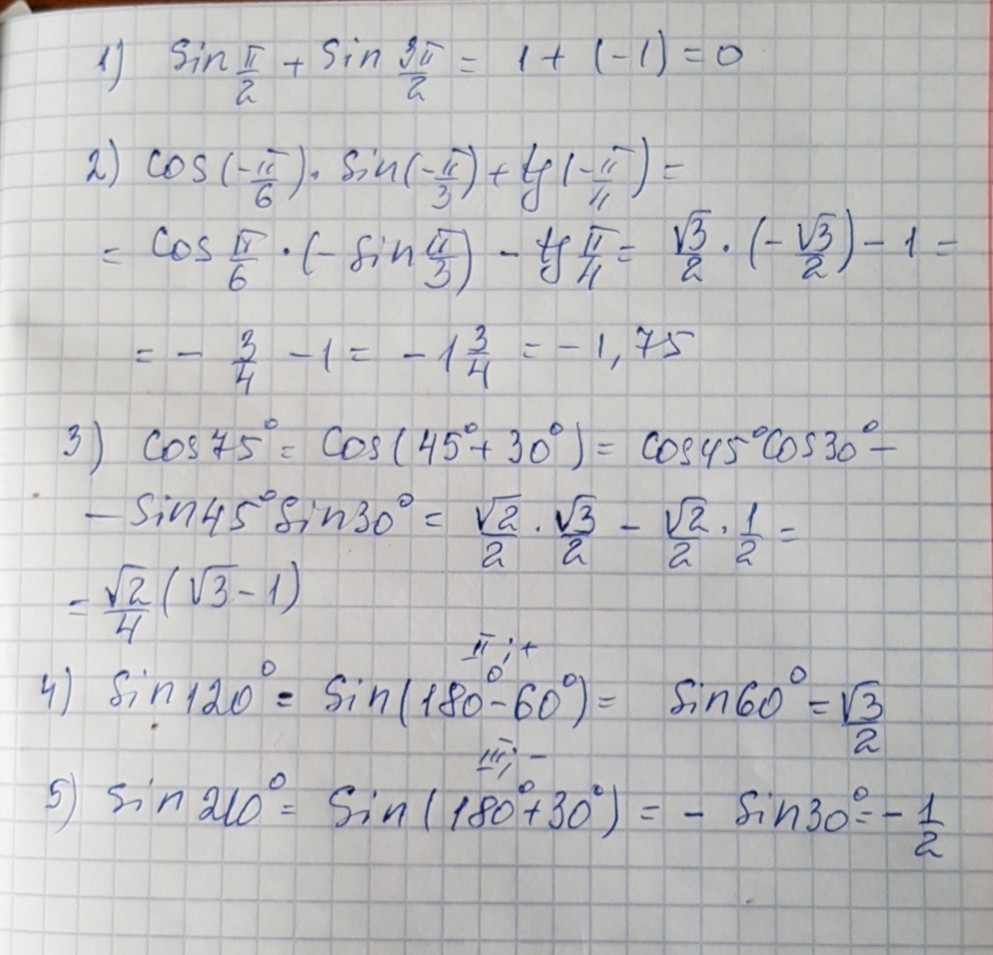 1) Sin π/2 + Sin 3π/2 = 1 + (-1) = 0
2) Cos(-π/6) · Sin(-π/3) + tg(-π/4) =
= Cos π/6 · (- Sin π/3) - tg π/4 = √3/2 · (-√3/2) - 1 =
= - 3/4 - 1 = - 1 3/4 = - 1,75
3) Cos 75° = Cos(45° + 30°) = Cos 45° Cos 30° -
- Sin 45° Sin 30° = √2/2 · √3/2 - √2/2 · 1/2 =
= √2/4 (√3 - 1)
II; +
4) Sin 120° = Sin(180° - 60°) = Sin 60° = √3/2
III; -
5) Sin 210° = Sin(180° + 30°) = - Sin 30° = - 1/2